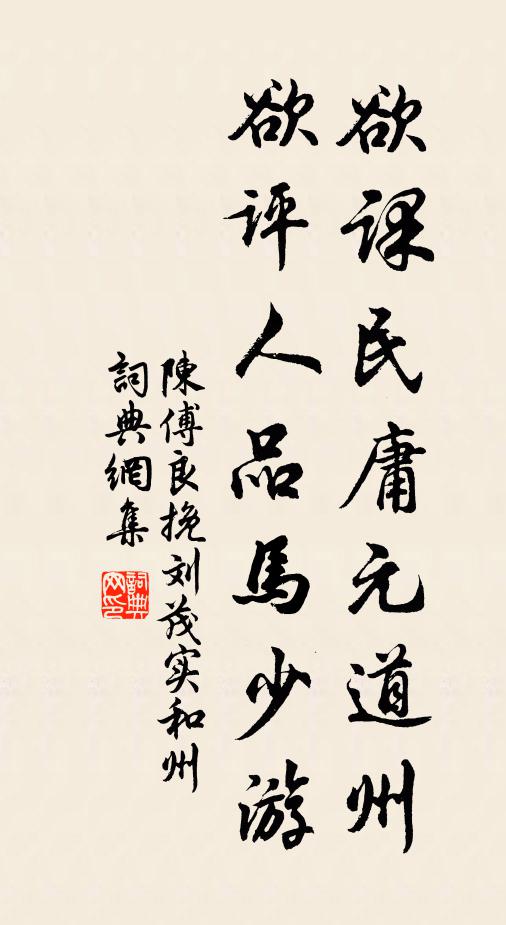 欲课民庸元道州
欲评人品馬少游
陳傅良挽刘茂实和州
詞典網集
詞典网印